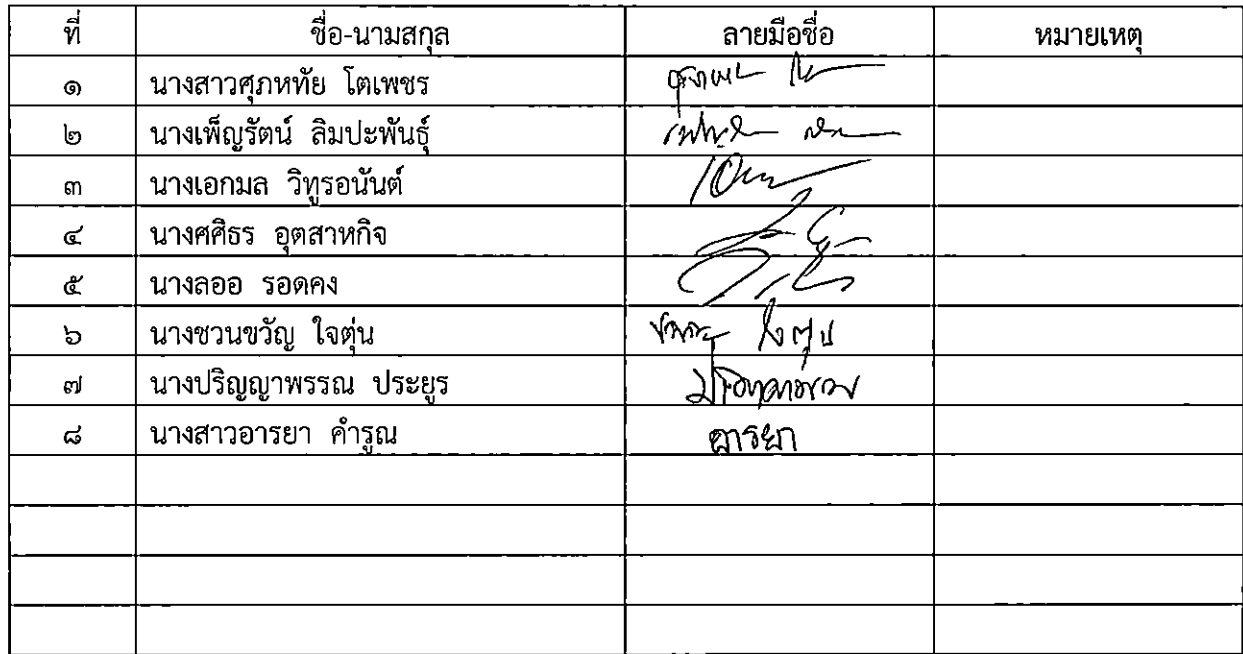 ที่ ชื่อ-นามสกุล ลายมือชื่อ หมายเหตุ
๑ นางสาวศุภหทัย โตเพชร
๒ นางเพ็ญรัตน์ ลิมปะพันธุ์
๓ นางเอกมล วิทูรอนันต์
๔ นางศศิธร อุตสาหกิจ
๕ นางลออ รอดคง
๖ นางชวนขวัญ ใจตุ่น
๗ นางปริญญาพรรณ ประยูร
๘ นางสาวอารยา คำรูณ อารยา